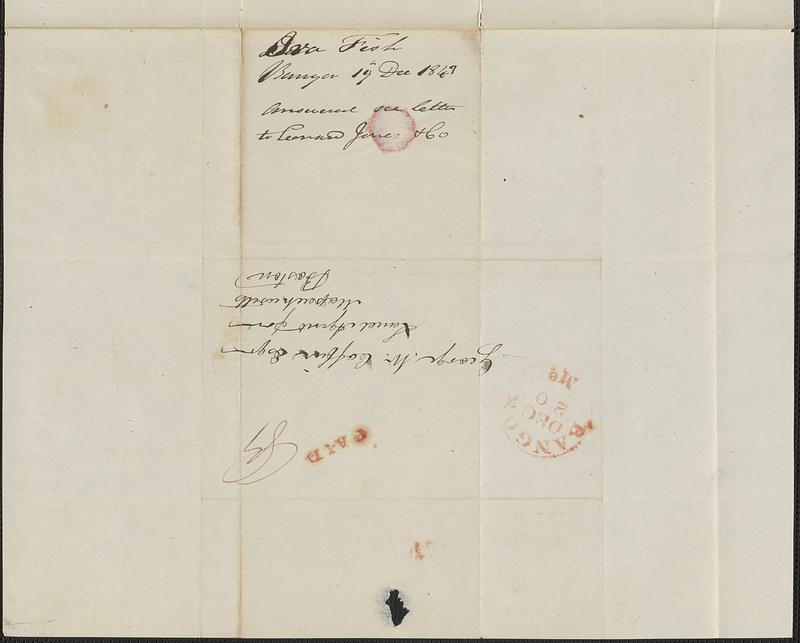 Ira Fish
Bangor 19 Dec 1843
Answered see letter
to Leonard Jones & Co
George W. Coffin Esqr
Land Agent for
Massachusetts
Boston
PAID
BANGOR
DEC
20
Me